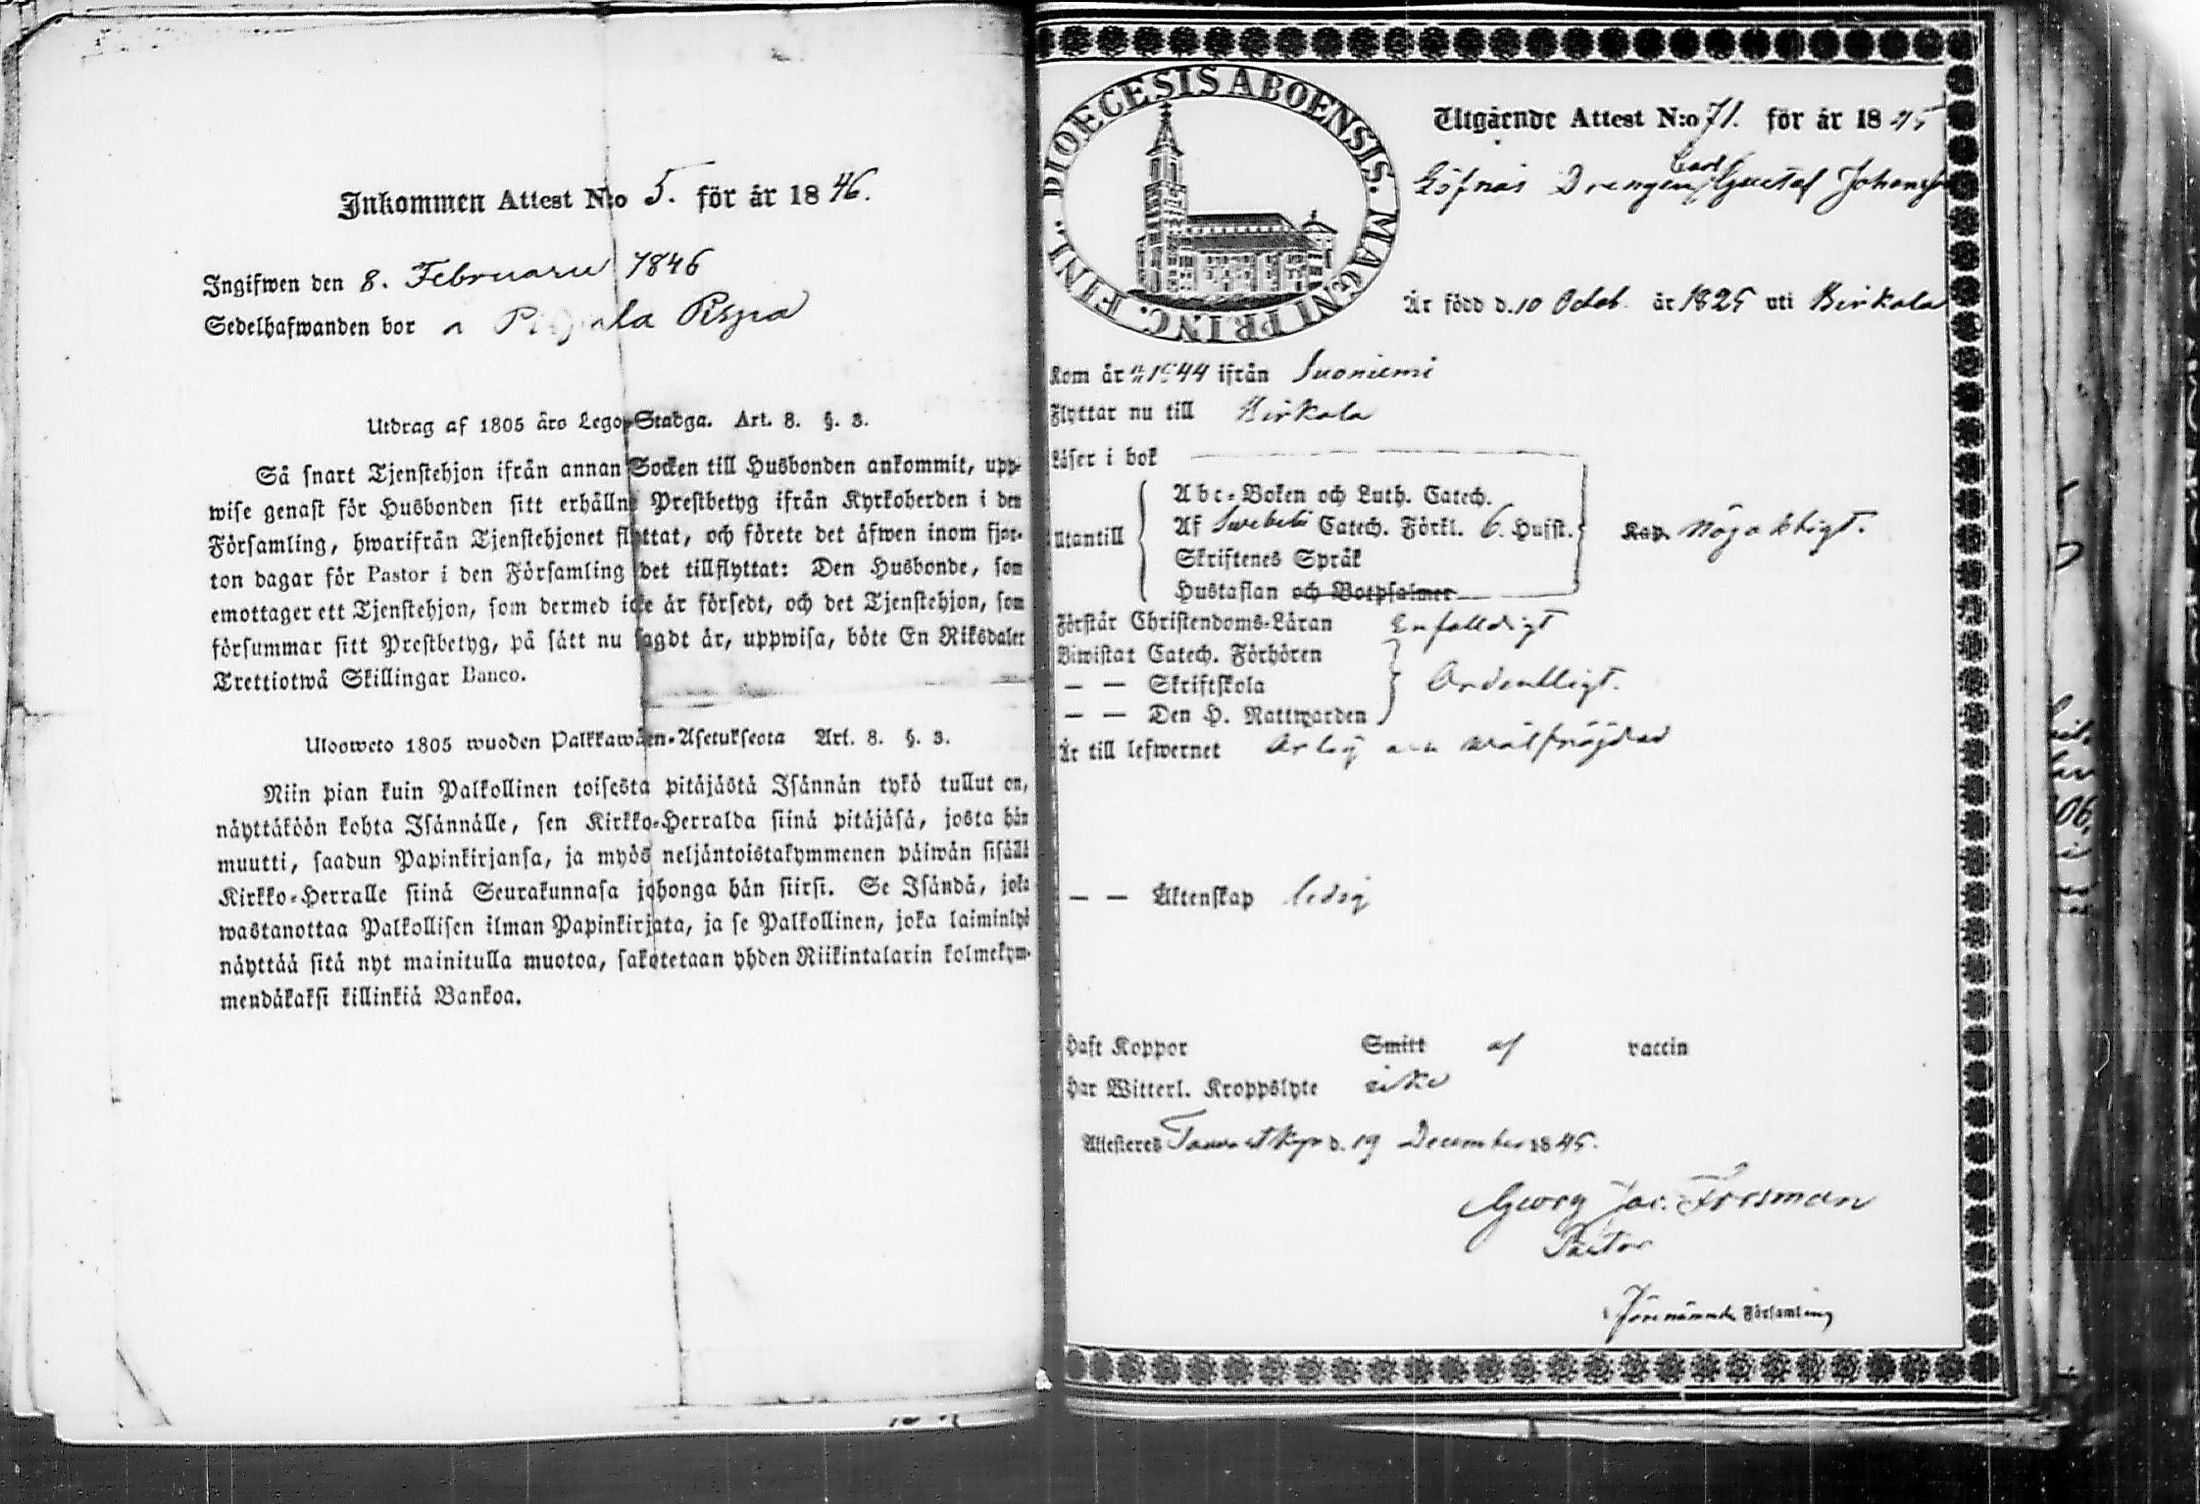 Inkommen Attest N:o 5. för år 1846.
Ingifwen den 8. Februarii 1846
Sedelhafwanden bor
Utdrag af 1805 års Lego-Stadga. Art. 8. §. 3.
Så snart Tjenstehjon ifrån annan Socken till Husbonden ankommit, upp-
wise genast för Husbonden sitt erhållne Prestbetyg ifrån Kyrkoherden i den
Församling, hwarifrån Tjenstehjonet flyttat, och förete det äfwen inom fjor-
ton dagar för Pastor i den Församling det tillflyttat: Den Husbonde, som
emottager ett Tjenstehjon, som dermed icke är försedt, och det Tjenstehjon, som
försummar sitt Prestbetyg, på sätt nu sagdt är, uppwisa, böte En Riksdaler
Trettiotwå Skillingar Banco.
Ulosweto 1805 wuoden Palkkawäen-Asetuksesta Art. 8. §. 3.
Niin pian kuin Palkollinen toisesta pitäjästä Isännän tykö tullut on,
näyttäköön kohta Isännälle, sen Kirkko-Herralda siinä pitäjäsä, josta hän
muutti, saadun Papinkirjansa, ja myös neljäntoistakymmenen päiwän sisällä
Kirkko-Herralle siinä Seurakunnasa johonga hän siirsi. Se Isändä, joka
wastanottaa Palkollisen ilman Papinkirjata, ja se Palkollinen, joka laiminlyö
näyttää sitä nyt mainitulla muotoa, sakotetaan yhden Riikintalarin kolmekym-
mendäkaksi killinkiä Bankoa.
DIOECESIS ABOENSIS. MAGNI PRINC. FINL.
Utgående Attest N:o 71. för år 1845
Drengen Carl Gustaf Johansson
Är född d. 10 Octob. år 1825 uti Birkala
Kom år 1844 ifrån Suoniemi
Flyttar nu till Birkala
Läser i bok
Utantill
Abc-Boken och Luth. Catech.
Af Swebelii Catech. Förkl. 6. Hufst.
Skriftenes Språk
Hustaflan och Botpsalmer
Kap. Nögaktigt.
Förstår Christendoms-Läran Enfalldigt
Biwistat Catech. Förhören
— — Skriftskola Ordentligt.
— — Den H. Nattwarden
Är till lefwernet ärlig och wälfräjdad
— — Äktenskap ledig
Haft Koppor Smitt af vaccin
Har Witterl. Kroppslyte icke
Attesteres Tawastkyro d. 19 December 1845.
Georg Jac. Forsman
Pastor
Församling